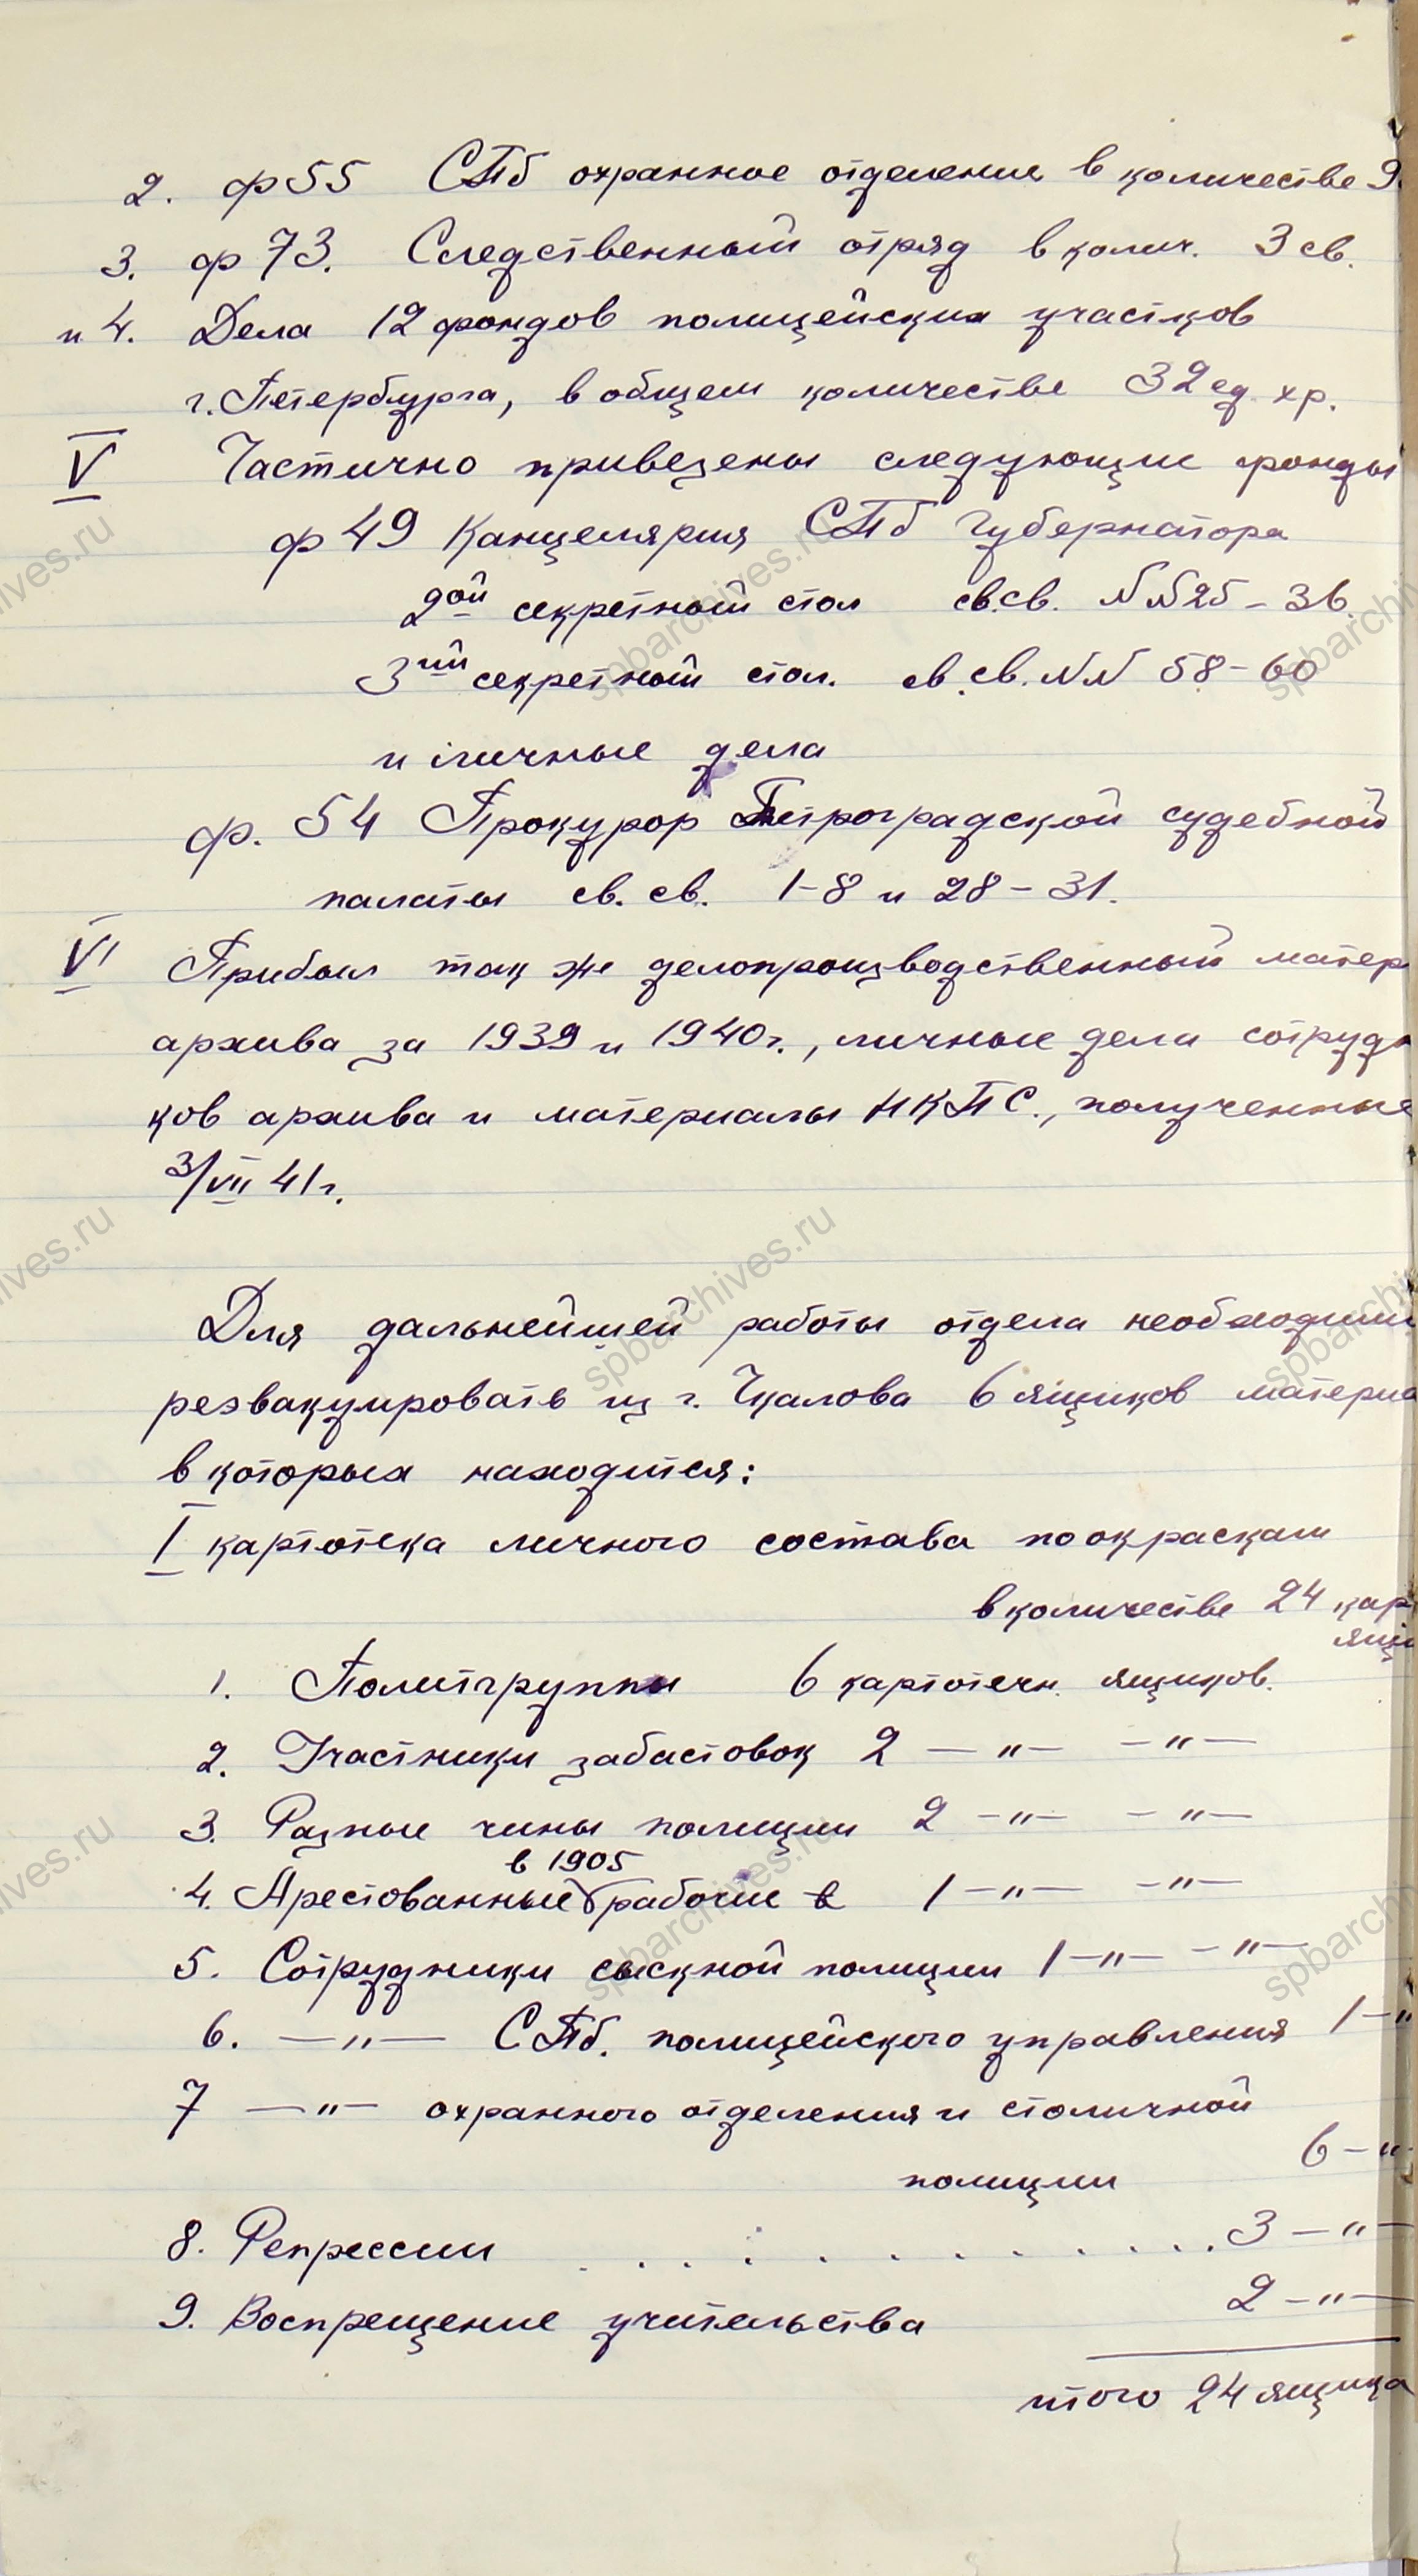 2. ф 55 СПб охранное отделение в количестве 9
3. ф 73. Следственный отряд в колич. 3 св.
и 4. Дела 12 фондов полицейских участков
г. Петербурга, в общем количестве 32 ед. хр.
V Частично привезены следующие фонды
ф 49 Канцелярия СПб Губернатора
2ой секретный стол св.св. NN 25 – 36.
3ий секретный стол. св.св. NN 58 – 60
и личные дела
ф. 54 Прокурор Петроградской судебной
палаты св. св. 1–8 и 28–31.
VI Прибыл так же делопроизводственный матер
архива за 1939 и 1940 г., личные дела сотрудн
ков архива и материалы НКПС., полученные
3/VII 41 г.
Для дальнейшей работы отдела необходим
реэвакуировать из г. Чкалова 6 ящиков материа
в которых находится:
I картотека личного состава по окраскам
в количестве 24 кар
ящи
1. Политгруппы 6 картотечн. ящиков.
2. Участники забастовок 2 — " — — " —
3. Разные чины полиции 2 — " — — " —
в 1905
4. Арестованные рабочие в 1 — " — — " —
5. Сотрудники сыскной полиции 1 — " — — " —
6. — " — СПб. полицейского управления 1 — "
7 — " — охранного отделения и столичной
полиции 6 — "
8. Репрессии . . . . . . . . . . 3 — " —
9. Воспрещение учительства 2 — " —
итого 24 ящика
spbarchives.ru